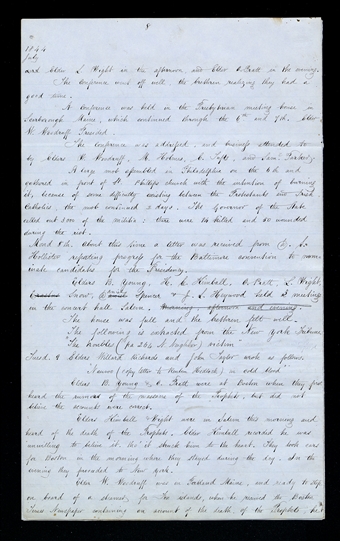 8
1844
July
and Elder L. Wight in the afternoon, and Elder O. Pratt in the evening.
The conference went off well, the brethren realizing they had a
good time.
A conference was held in the Presbyterian meeting house in
Scarborough, Maine, which continued through the 6th and 7th. Elder
W. Woodruff Presided.
The conference was addressed, and business attended to
by Elders W. Woodruff, M. Holmes, and Saml. Parker,
A large mob assembled in Philadelphia on the 6th and
cannoned in front of St. Phillips church with the intention of burning
it, because of some difficulty existing between the Protestants and Irish
Catholics, the mob continued 2 days. The Governor of the State
called out 5000 of the militia: there were 14 killed and 50 wounded
during the riot.
Mond. 8th. About this time a letter was received from
Hollister reporting progress for the Baltimore convention to nomi
nate candidates for the Presidency.
Elders B. Young, H. C. Kimball, O. Pratt, L. Wight,
Snow, Daniel Spencer & J. L. Heywood held 2 meetings
in the court hall Salem,
The house was full and the brethren felt well.
The following is extracted from the New York Tribune
"The troubles (pa 264 N. Neighbor) written
Tuesd. 9 Elders Willard Richards and John Taylor wrote as follows.
Nauvoo (copy letter to Reuben Hedlock) in cold blood"
Elders B. Young & O. Pratt were at Boston when they first
heard the rumors of the massacre of the Prophets, but did not
believe the reports were correct.
Elders Kimball & Wight were in Salem this morning and
heard of the death of the Prophets, Elder Kimball recorded he was
unwilling to believe it, tho' it struck him to the heart. They took cars
for Boston in the morning where they stayed during the day. In the
evening they proceeded to New York.
Elder W. Woodruff was in Portland Maine, and ready to step
on board of a steamer for Fox islands, when he received the Boston
Times Newspaper containing an account of the death of the Prophets, he